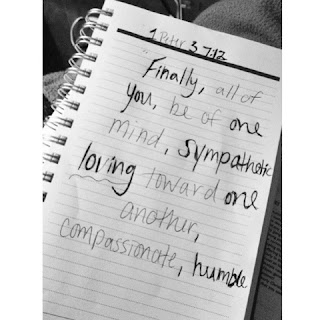 1 Peter 3 7:12
Finally, all of
you, be of one
mind, sympathetic
loving toward one
another,
compassionate, humble